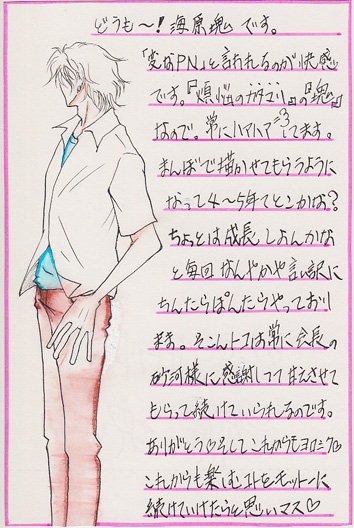 どうも〜!海原塊です。
「変なPN」と言われるのが快感
です。『煩悩のカタマリ』の『塊』
なので。常にハァハァしてます。
まんぼで描かせてもらうように
なって4〜5年てとこかな?
ちょっとは成長しよんかな
と毎回なんやかや言い訳に
ちんたらぽんたらやっており
ます。そこんトコは常に会長の
砂河様に感謝しつつ甘えさせて
もらって続けていられるのです。
ありがとう♡そしてこれからもヨロシク♡
これからも楽しむコトをモットーに
続けていけたらと思いマス♡